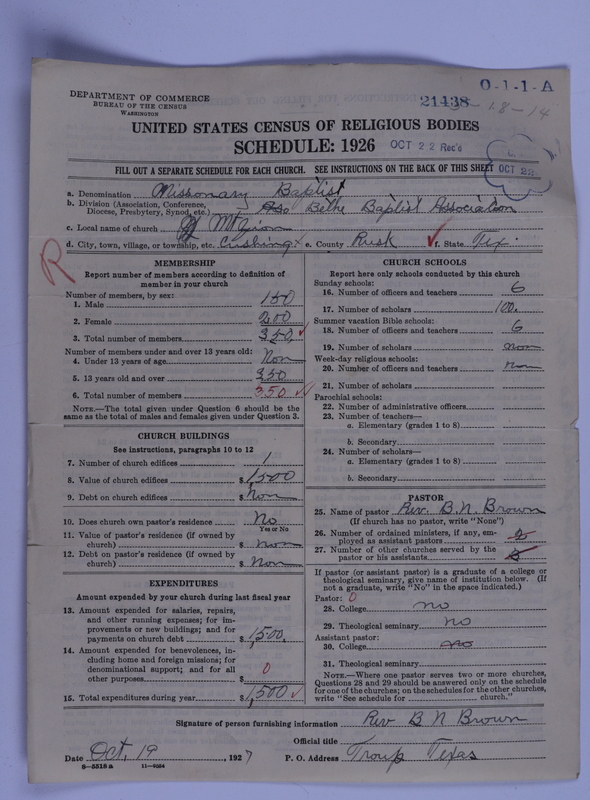 DEPARTMENT OF COMMERCE
BUREAU OF THE CENSUS
WASHINGTON
0-1-1-A
21438
18-14
UNITED STATES CENSUS OF RELIGIOUS BODIES
SCHEDULE: 1926
OCT 22 Rec'd
OCT 22
FILL OUT A SEPARATE SCHEDULE FOR EACH CHURCH. SEE INSTRUCTIONS ON THE BACK OF THIS SHEET
a. Denomination Missionary Baptist
b. Division (Association, Conference, Diocese, Presbytery, Synod, etc.) Bethe Baptist Association
c. Local name of church Mt Zion
d. City, town, village, or township, etc. Cushing e. County Rusk f. State Tex.
R
MEMBERSHIP
Report number of members according to definition of
member in your church
Number of members, by sex:
1. Male 150
2. Female 200
3. Total number of members 350
Number of members under and over 13 years old:
4. Under 13 years of age Non
5. 13 years old and over 350
6. Total number of members 350
NOTE.—The total given under Question 6 should be the
same as the total of males and females given under Question 3.
CHURCH BUILDINGS
See instructions, paragraphs 10 to 12
7. Number of church edifices 1
8. Value of church edifices $ 1500
9. Debt on church edifices $ Non
10. Does church own pastor's residence No
Yes or No
11. Value of pastor's residence (if owned by
church) $ Non
12. Debt on pastor's residence (if owned by
church) $ Non
EXPENDITURES
Amount expended by your church during last fiscal year
13. Amount expended for salaries, repairs,
and other running expenses; for im-
provements or new buildings; and for
payments on church debt $ 1,500.
14. Amount expended for benevolences, in-
cluding home and foreign missions; for
denominational support; and for all
other purposes $ 0
15. Total expenditures during year $ 1,500
CHURCH SCHOOLS
Report here only schools conducted by this church
Sunday schools:
16. Number of officers and teachers 6
17. Number of scholars 100.
Summer vacation Bible schools:
18. Number of officers and teachers 6
19. Number of scholars non
Week-day religious schools:
20. Number of officers and teachers non
21. Number of scholars
Parochial schools:
22. Number of administrative officers
23. Number of teachers—
a. Elementary (grades 1 to 8)
b. Secondary
24. Number of scholars—
a. Elementary (grades 1 to 8)
b. Secondary
PASTOR
25. Name of pastor Rev. B. N. Brown
(If church has no pastor, write "None")
26. Number of ordained ministers, if any, em-
ployed as assistant pastors 2
27. Number of other churches served by the
pastor or his assistants
If pastor (or assistant pastor) is a graduate of a college or
theological seminary, give name of institution below. (If
not a graduate, write "No" in the space indicated.)
Pastor: 0
28. College no
29. Theological seminary no
Assistant pastor:
30. College no
31. Theological seminary
NOTE.—Where one pastor serves two or more churches,
Questions 28 and 29 should be answered only on the schedule
for one of the churches; on the schedules for the other churches,
write "See schedule for church."
Signature of person furnishing information Rev B N Brown
Official title
Date Oct. 19, 1927 P. O. Address Troup Texas
8-5518a 11-9054